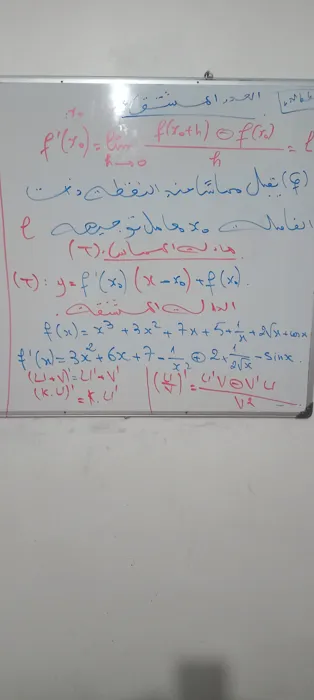 العدد المشتق
x₀
f'(x₀) = lim h→0 f(x₀+h) ⊖ f(x₀) / h = l
(Cf) يقبل مماسا عند النقطة ذات
الفاصلة x₀ معامل توجيهه l
معادلة المماس (T)
(T): y = f'(x₀) (x - x₀) + f(x₀).
الدالة المشتقة
f(x) = x³ + 3x² + 7x + 5 + 1/x + 2√x + cosx
f'(x) = 3x² + 6x + 7 - 1/x² ⊕ 2 × 1/2√x - sinx.
(U+V)' = U' + V'
(K.U)' = K.U'
(U/V)' = U'V ⊖ V'U / V²